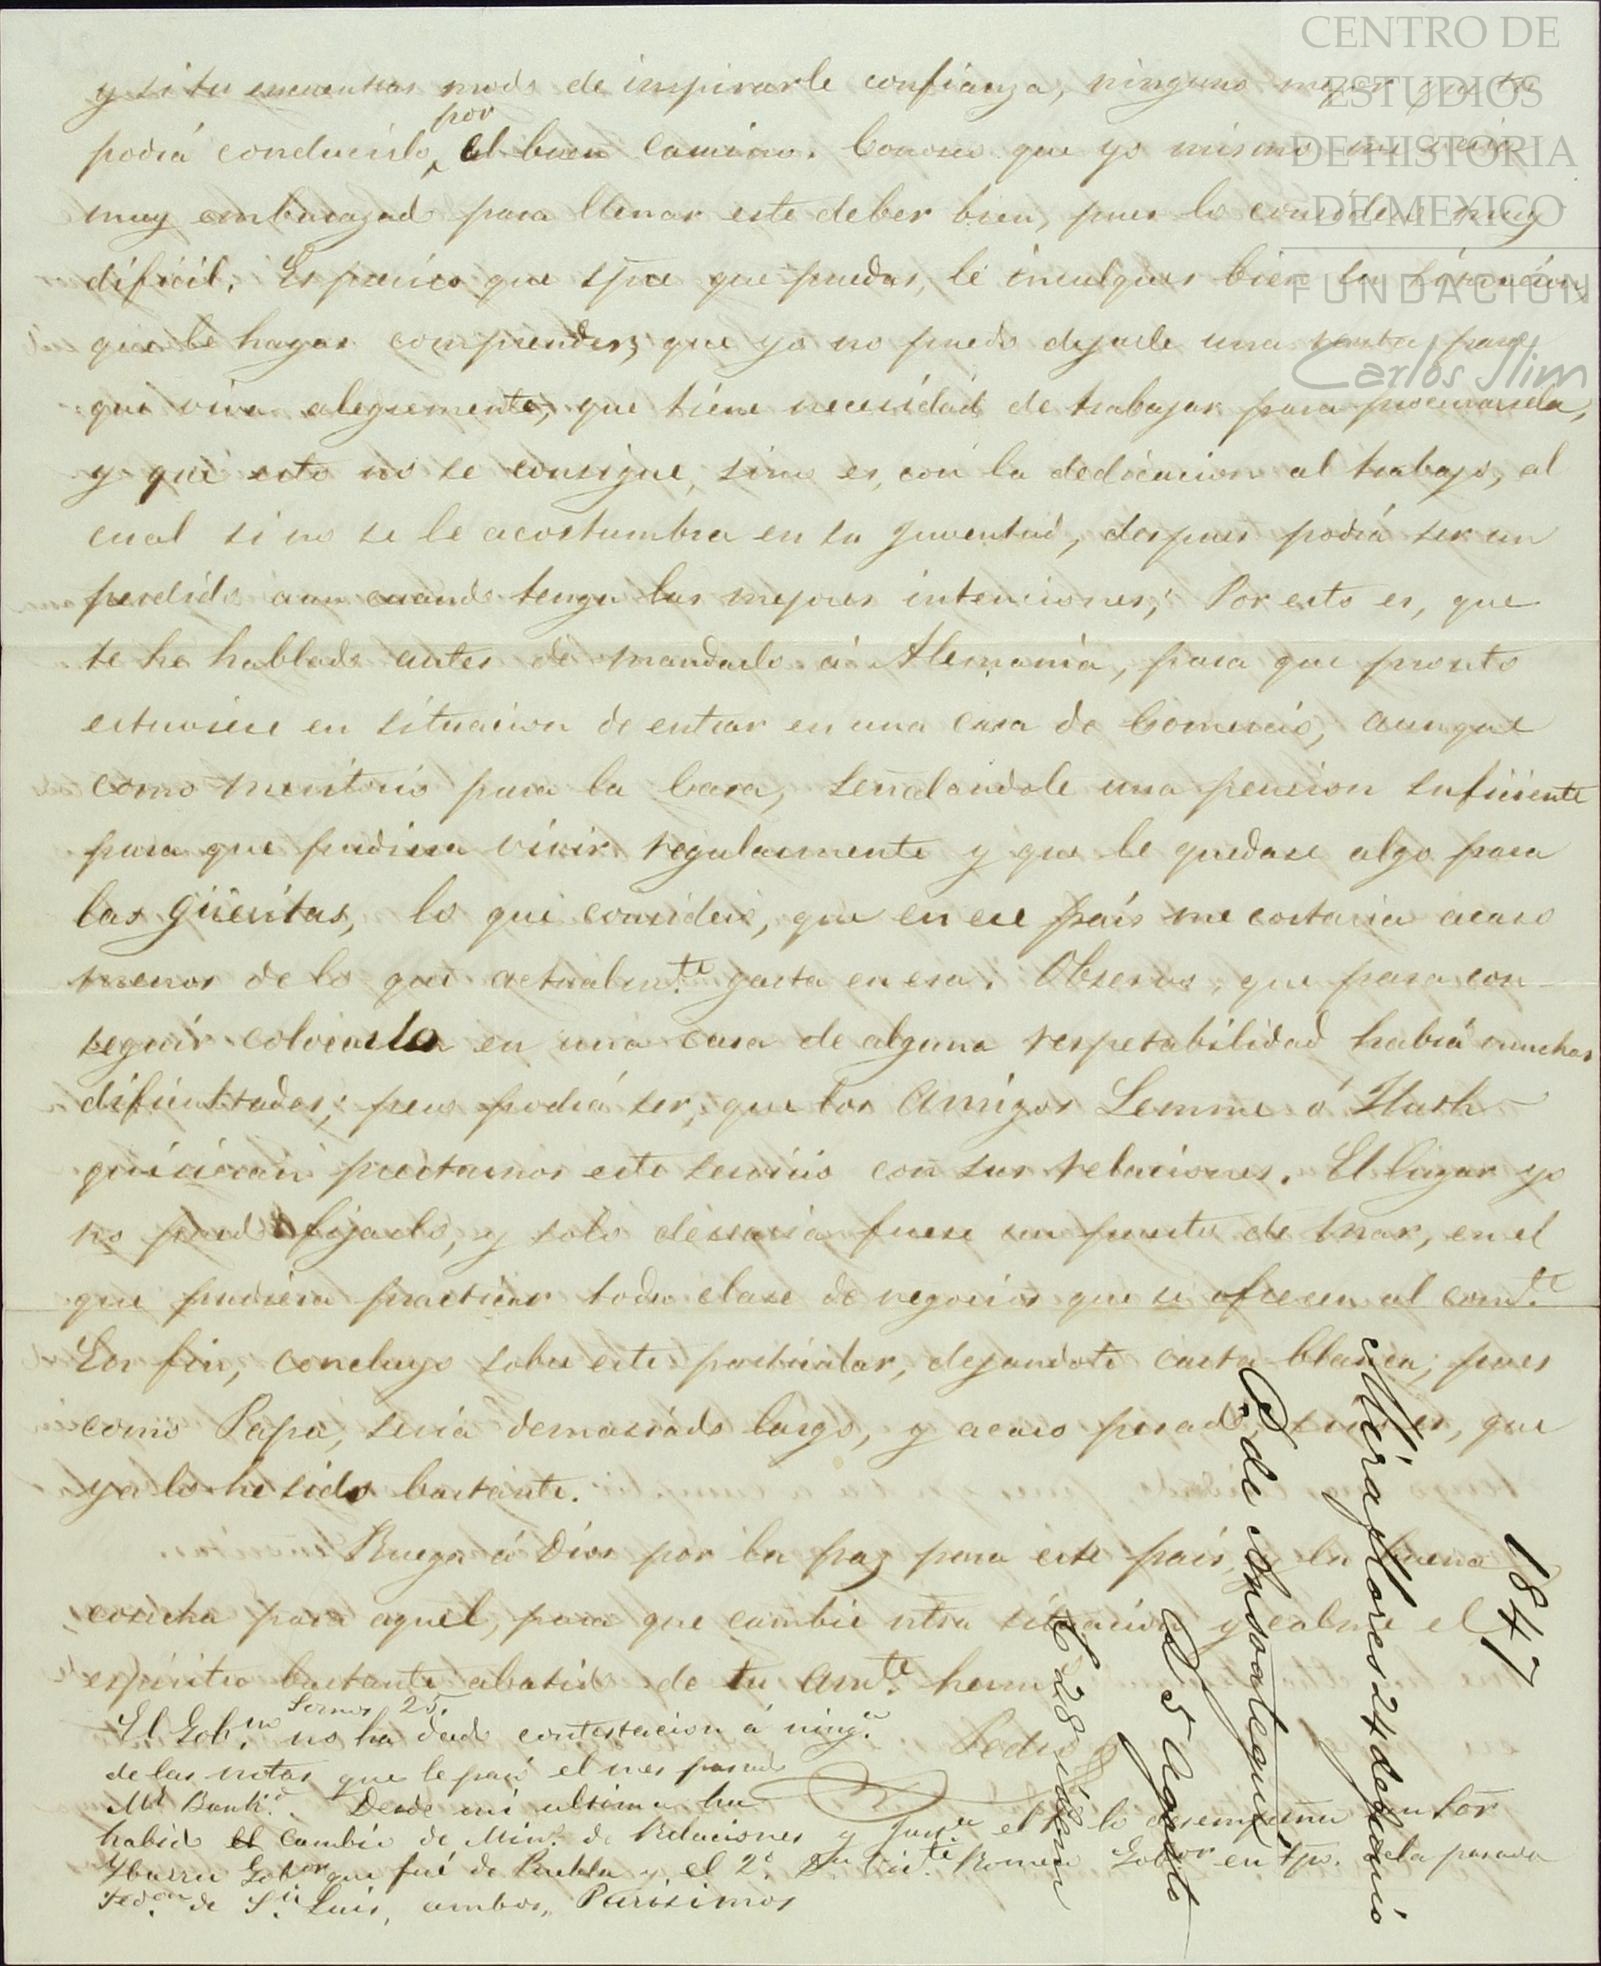 CENTRO DE
ESTUDIOS
DE HISTORIA
DE MEXICO
FUNDACION
Carlos Slim
y si tu encuentras modo de inspirarle confianza, ninguno mejor que tu
podrá conducirlo por el buen camino. Conosco que yo mismo me veria
muy embarazado para llenar este deber bien, pues lo considero muy
dificil. Es preciso que spre que puedas, le inculques bien su situacion,
que le hagas comprender, que yo no puedo dejarle una renta para
que viva alegremente, que tiene necesidad de trabajar para procurarsela,
y que esto no se consigue, sino es, con la dedicacion al trabajo, al
cual si no se le acostumbra en su juventud, despues podrá ser un
perdido aun cuando tenga las mejores intenciones; Por esto es, que
te he hablado antes de mandarlo á Alemania, para que pronto
estuviese en situacion de entrar en una casa de Comercio, aunque
como meritorio para la Casa, señalandole una pension suficiente
para que pudiera vivir regularmente y que le quedase algo para
las güeritas, lo que considero, que en ese país me costaria acaso
menos de lo que actualmte. gasta en esa. Observo, que para con-
seguir colocarlo en una casa de alguna respetabilidad habrá muchas
dificultades; pero podrá ser, que los Amigos Lemme ó
quisieran prestarnos este servicio con sus relaciones. El lugar yo
no puedo fijarlo, y solo desearia fuese un puerto de mar, en el
que pudiera practicar toda clase de negocios que se ofrecen al comte.
En fin, concluyo sobre este particular, dejandote carta blanca; pues
como Papá, seria demasiado largo, y acaso pesado, sino es, que
ya lo he sido bastante.
Ruega á Dios por la paz para este pais, y la buena
cosecha para aquel, para que cambie ntra situacion y calme el
espiritu bastante abatido de tu Amte. hermo.
Pedro
Somos 25.
El Gobno. no ha dado contestacion á ninga.
de las notas que le pasó el mes pasado
Mr Bank. Desde mi ultima ha
habido el cambio de Mino. de Relaciones y el 1o. lo desempeña un Sor
Ybarra Gobor que fué de Puebla y el 2o. Romero Gobor en tpo. de la pasada
Fedon. de Sn. Luis, ambos, Purisimos
1847
Miraflores 24 de Junio
P. de Ansoategui
R 5 Agosto
C 28 idem